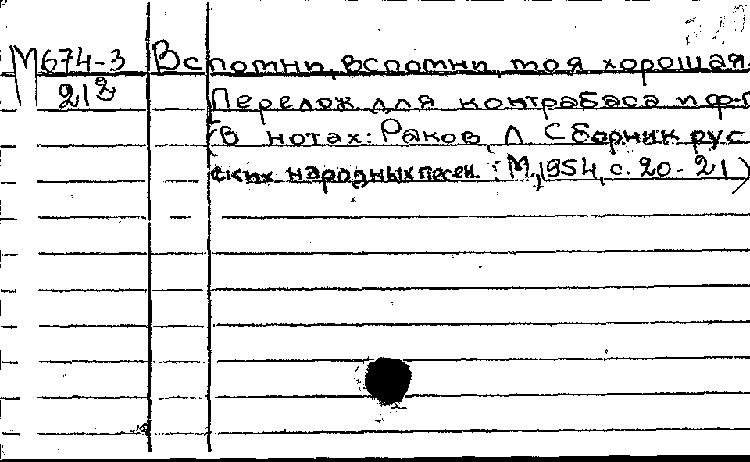 М674-3 Вспомни, вспомни, моя хорошая.
218 Перелож. для контрабаса и ф-п
(В нотах: Раков, Л. Сборник рус
ских народных песен. : М., 1954, с. 20-21)